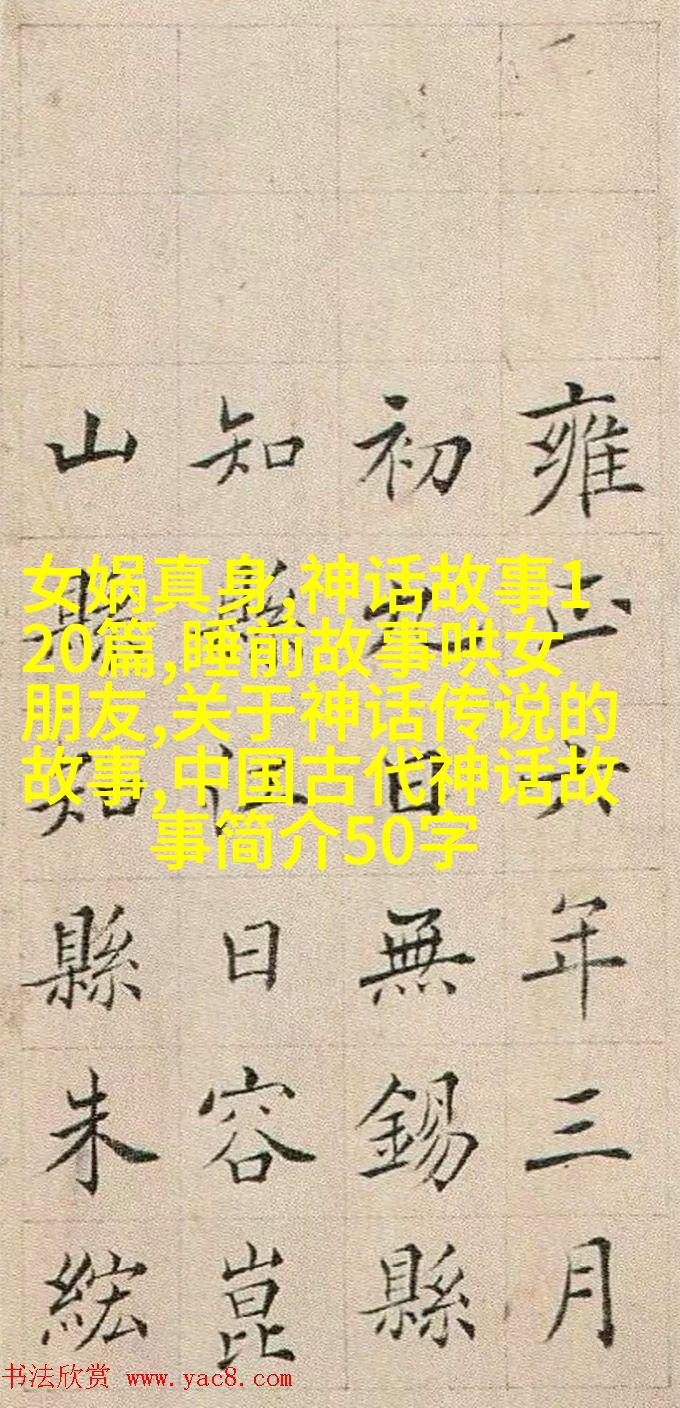 雍正六年三月
初日無錫縣
知縣江日容崑
山縣知縣朱紘
女娲真身,神话故事1
20篇,睡前故事哄女
朋友,关于神话传说的
故事,中国古代神话故
事简介50字
书法欣赏 www.yac8.com